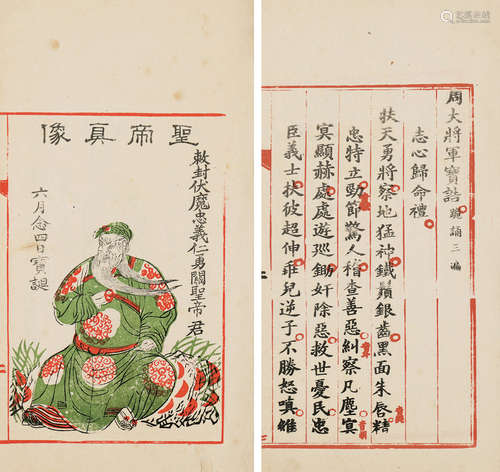 聖帝真像
敕封伏魔忠義仁勇關聖帝君
六月念四日寶誕
周大將軍寶誥 誦三遍
志心歸命禮
扶天勇將察地猛神鐵鬚銀齒黑面朱唇精
忠特立勁節驚人稽查善惡糾察凡塵冥
冥顯赫處處遊巡鋤奸除惡救世憂民忠
臣義士扶彼超伸乖兒逆子不勝怒嗔維